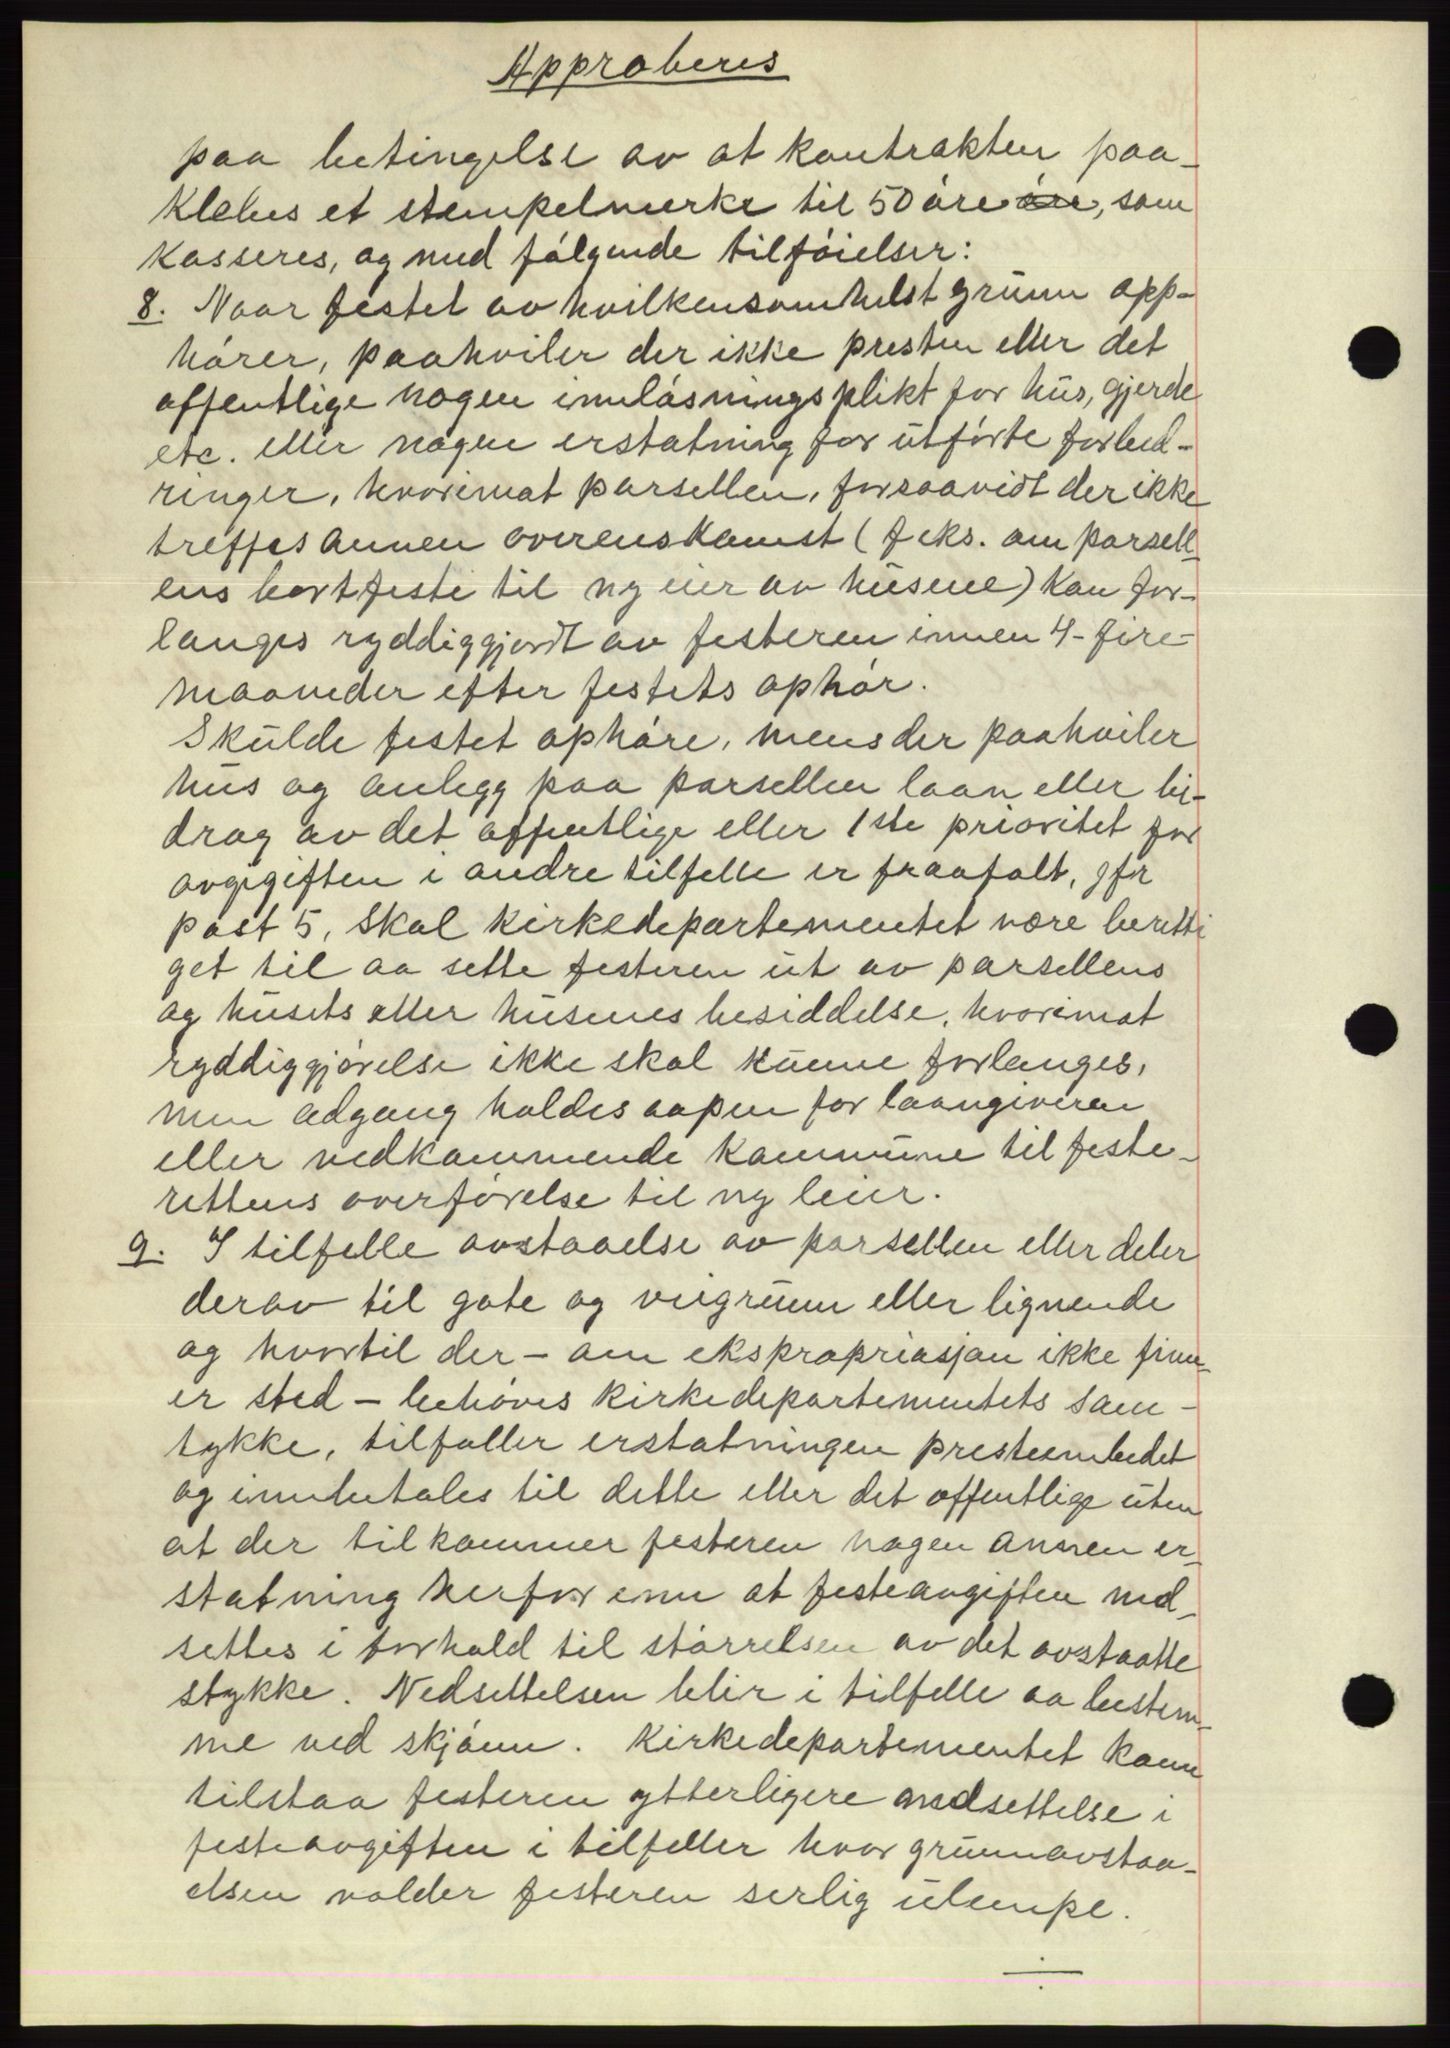 Approberes
paa betingelse av at kontrakten paa-
klebes et stempelmerke til 50 øre øre, som
kasseres, og med følgende tilføielser:
8. Naar festet av hvilkensomhelst grunn opp-
hører, paahviler der ikke presten eller det
offentlige nogen innløsningsplikt for hus, gjerde
etc. eller nogen erstatning for utførte forbed-
ringer, hvorimot parsellen, forsaavidt der ikke
treffes annen overenskomst (f eks. om parsell-
ens bortfeste til ny eier av husene) kan for-
langes ryddiggjordt av festeren innen 4-fire-
maaneder efter festets ophør.
Skulde festet ophøre, mens der paahviler
hus og anlegg paa parsellen laan eller bi-
drag av det offentlige eller 1ste prioritet for
avgigiften i andre tilfelle er frafalt, jfr
post 5, skal kirkedepartementet være beretti
get til aa sette festeren ut av parsellens
og husets eller husenes besiddelse, hvorimot
ryddiggjørelse ikke skal kunne forlanges,
men adgang holdes aapen for laangiveren
eller vedkommende kommune til feste-
rettens overførelse til ny leier.
9. I tilfelle avstaaelse av parsellen eller deler
derav til gate og veigrunn eller lignende
og hvortil der - om ekspropriasjon ikke finn-
er sted - behøves kirkedepartementets sam-
tykke, tilfaller erstatningen presteembedet
og innbetales til dette eller det offentlige uten
at der tilkommer festeren nogen annen er-
statning herfor enn at festeavgiften ned-
settes i forhold til størrelsen av det avstaatte
stykke. Nedsettelsen blir i tilfelle aa bestem-
me ved skjønn. Kirkedepartementet kann
tilstaa festeren ytterligere nedsettelse i
festeavgiften i tilfeller hvor grunnavstaa-
elsen volder festeren serlig ulempe.